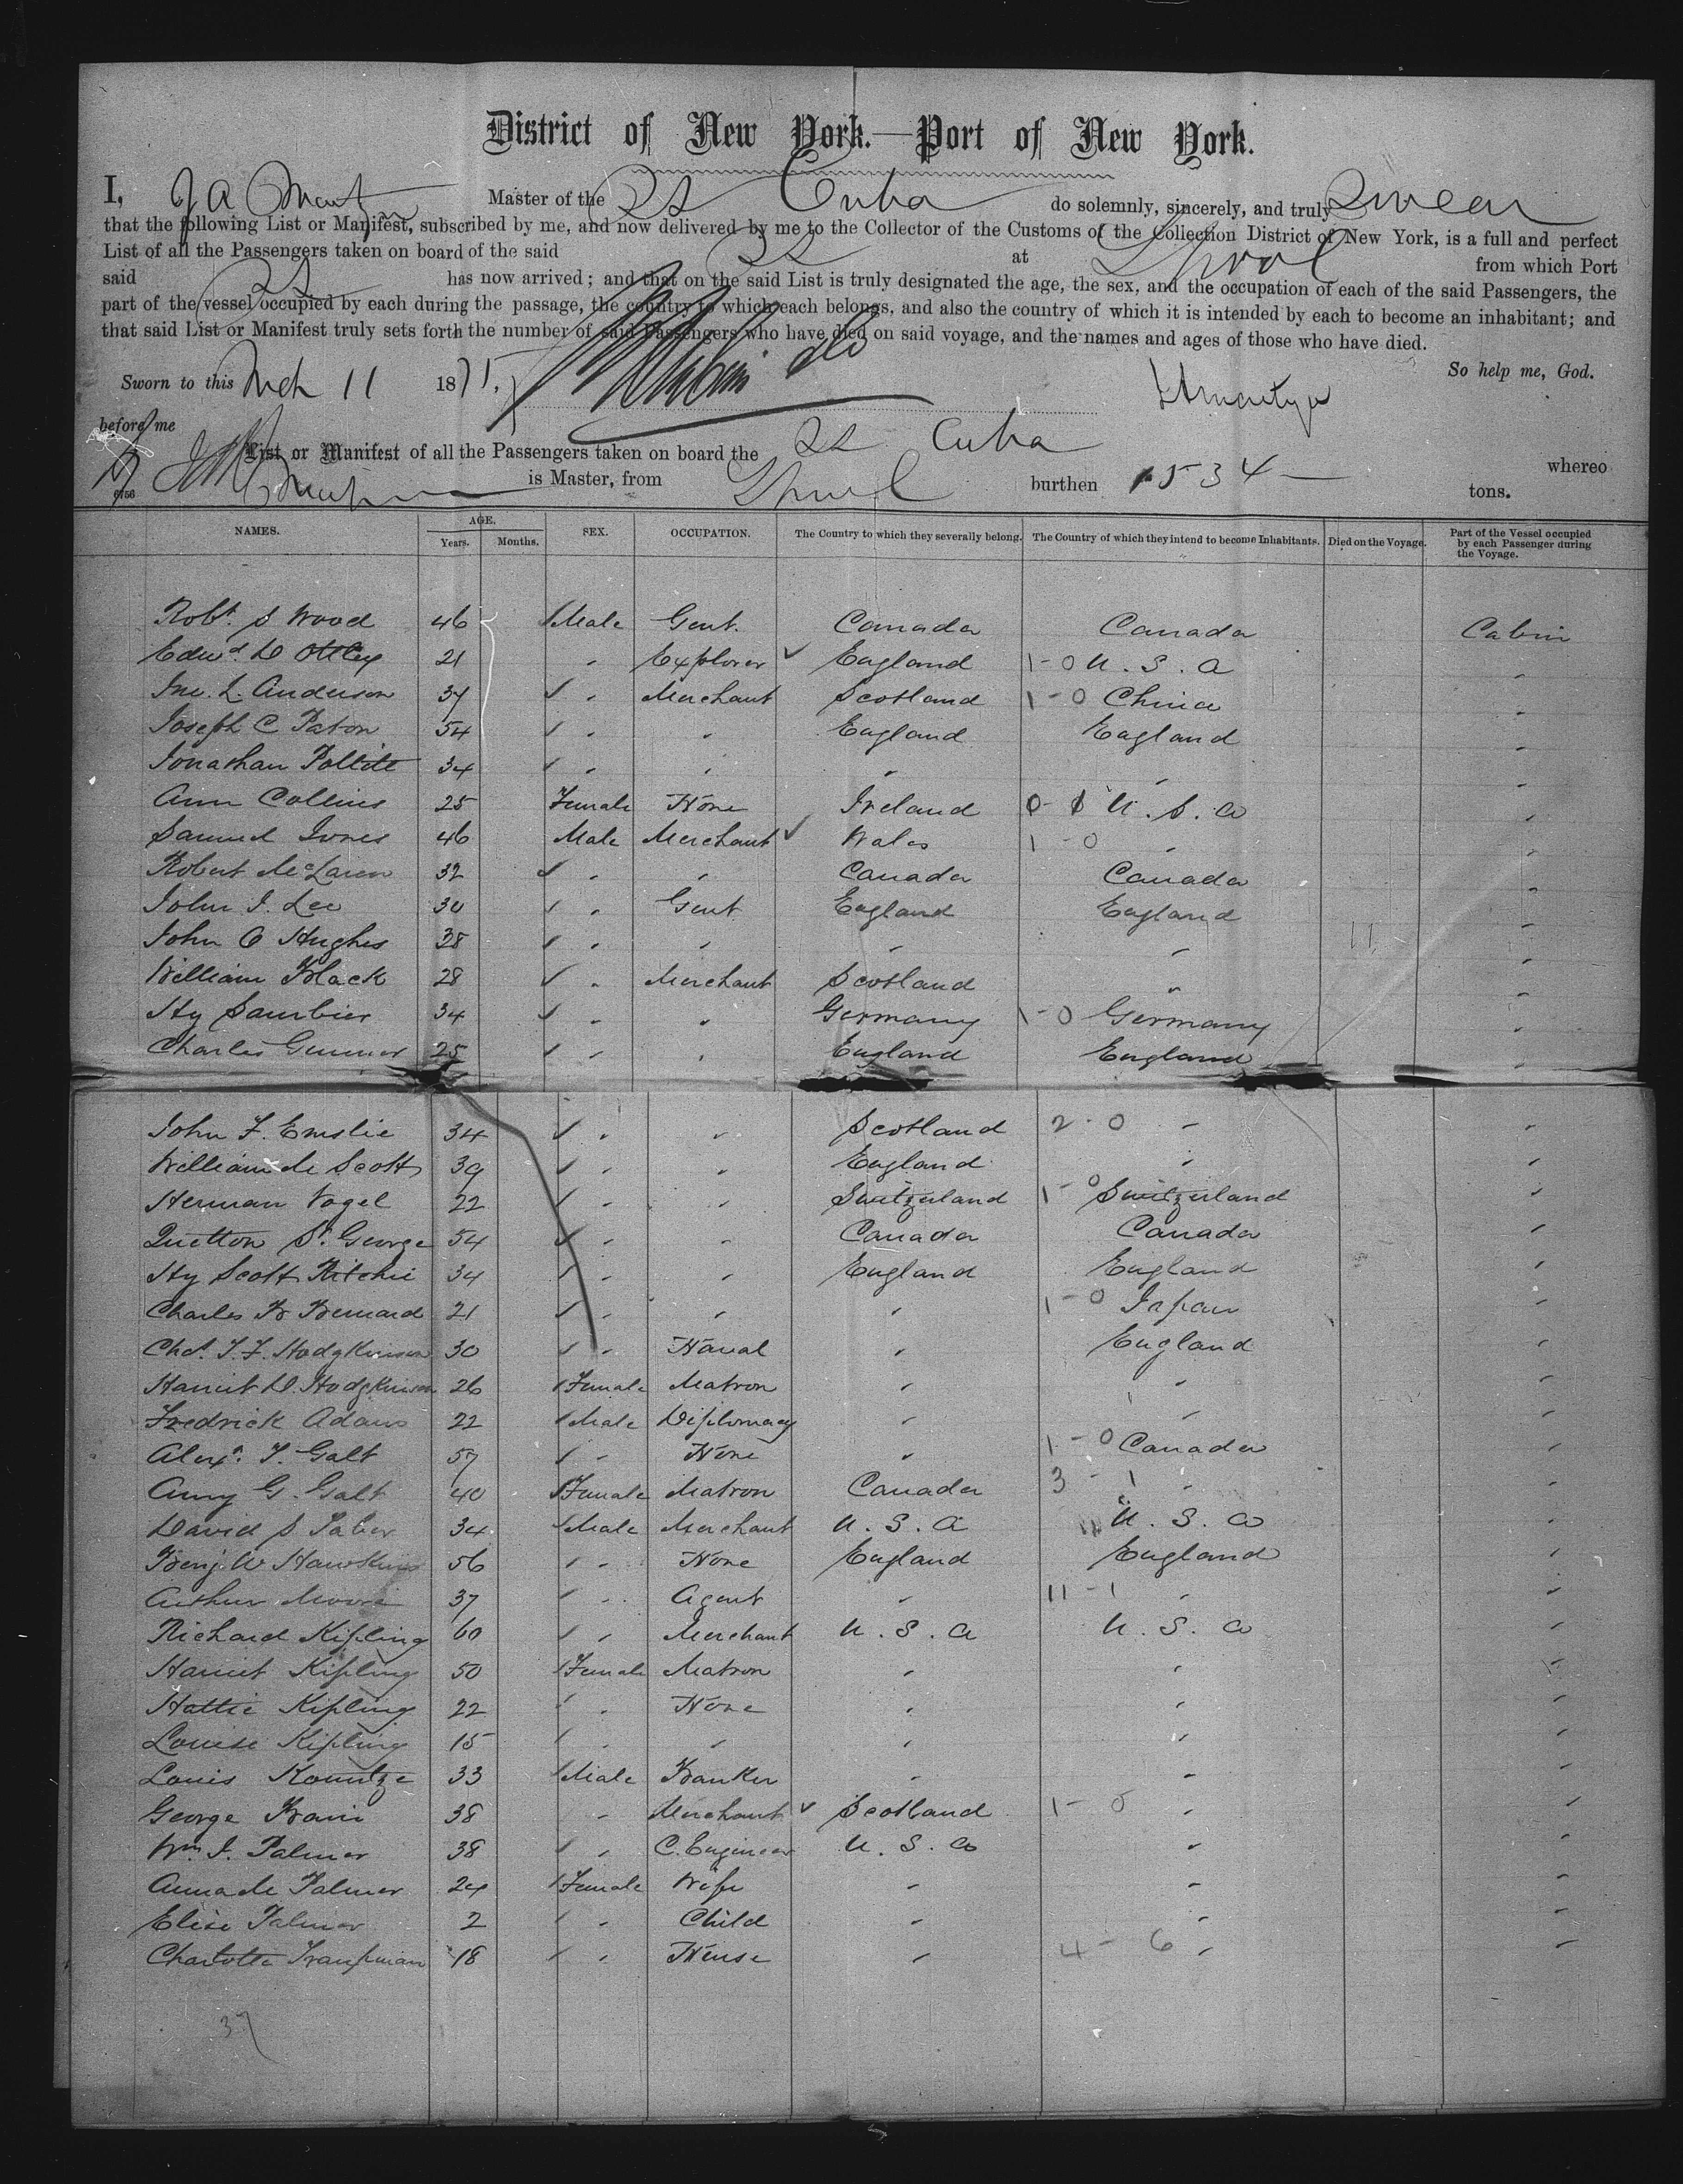 District of New York.—Port of New York.
I, Master of the SS Cuba do solemnly, sincerely, and truly swear
that the following List or Manifest, subscribed by me, and now delivered by me to the Collector of the Customs of the Collection District of New York, is a full and perfect
List of all the Passengers taken on board of the said SS at Lpool from which Port
said SS has now arrived; and that on the said List is truly designated the age, the sex, and the occupation of each of the said Passengers, the
part of the vessel occupied by each during the passage, the country to which each belongs, and also the country of which it is intended by each to become an inhabitant; and
that said List or Manifest truly sets forth the number of said Passengers who have died on said voyage, and the names and ages of those who have died.
So help me, God.
Sworn to this Mch 11 1875.
before me
List or Manifest of all the Passengers taken on board the SS Cuba whereo
6756 is Master, from Lpool burthen 1534 — tons.
NAMES. AGE. Years. Months. SEX. OCCUPATION. The Country to which they severally belong. The Country of which they intend to become Inhabitants. Died on the Voyage. Part of the Vessel occupied by each Passenger during the Voyage.
Robt. S Wood 46 Male Gent. Canada Canada Cabin
Edwd. D Ottley 21 " Explorer England 1-0 U.S.A "
Jno. L. Anderson 37 " Merchant Scotland 1-0 China "
Joseph C Paton 54 " " England England "
Jonathan Pollitt 34 " " " " "
Ann Collins 25 Female None Ireland U.S.A "
Samuel Jones 46 Male Merchant Wales 1-0 " "
Robert McLaren 32 " " Canada Canada "
John J. Lee 30 " Gent England England "
John O Hughes 38 " " " " "
William Black 28 " Merchant Scotland " "
Hy Saurbier 34 " " Germany 1-0 Germany "
Charles Gunner 25 " " England England "
John F. Emslie 34 " " Scotland 2-0 " "
William M Scott 39 " " England " "
Herman Vogel 22 " " Switzerland 1-0 Switzerland "
Quetton St. George 54 " " Canada Canada "
Hy Scott Ritchie 34 " " England England "
Charles B Bernard 21 " " " 1-0 Japan "
Chas. T. F. Hodgkinson 30 " Naval " England "
Harriet D. Hodgkinson 26 Female Matron " " "
Fredrick Adams 22 Male Diplomacy " " "
Alexr. T. Galt 57 " None " 1-0 Canada "
Amy G. Galt 40 Female Matron Canada 3-1 " "
David S Taber 34 Male Merchant U.S.A U.S.A "
Benj. W Hawkins 56 " None England England "
Arthur Moore 37 " Agent " 11-1 " "
Richard Kipling 60 " Merchant U.S.A U.S.A "
Harriet Kipling 50 Female Matron " " "
Hattie Kipling 22 " None " " "
Louise Kipling 15 " " " " "
Louis Kountze 33 Male Banker " " "
George Bain 38 " Merchant Scotland 1-0 " "
Wm. J. Palmer 38 " C. Engineer U.S.A " "
Anna M Palmer 24 Female Wife " " "
Elise Palmer 2 " Child " " "
Charlotte 18 " Nurse " 4-6 " "
37